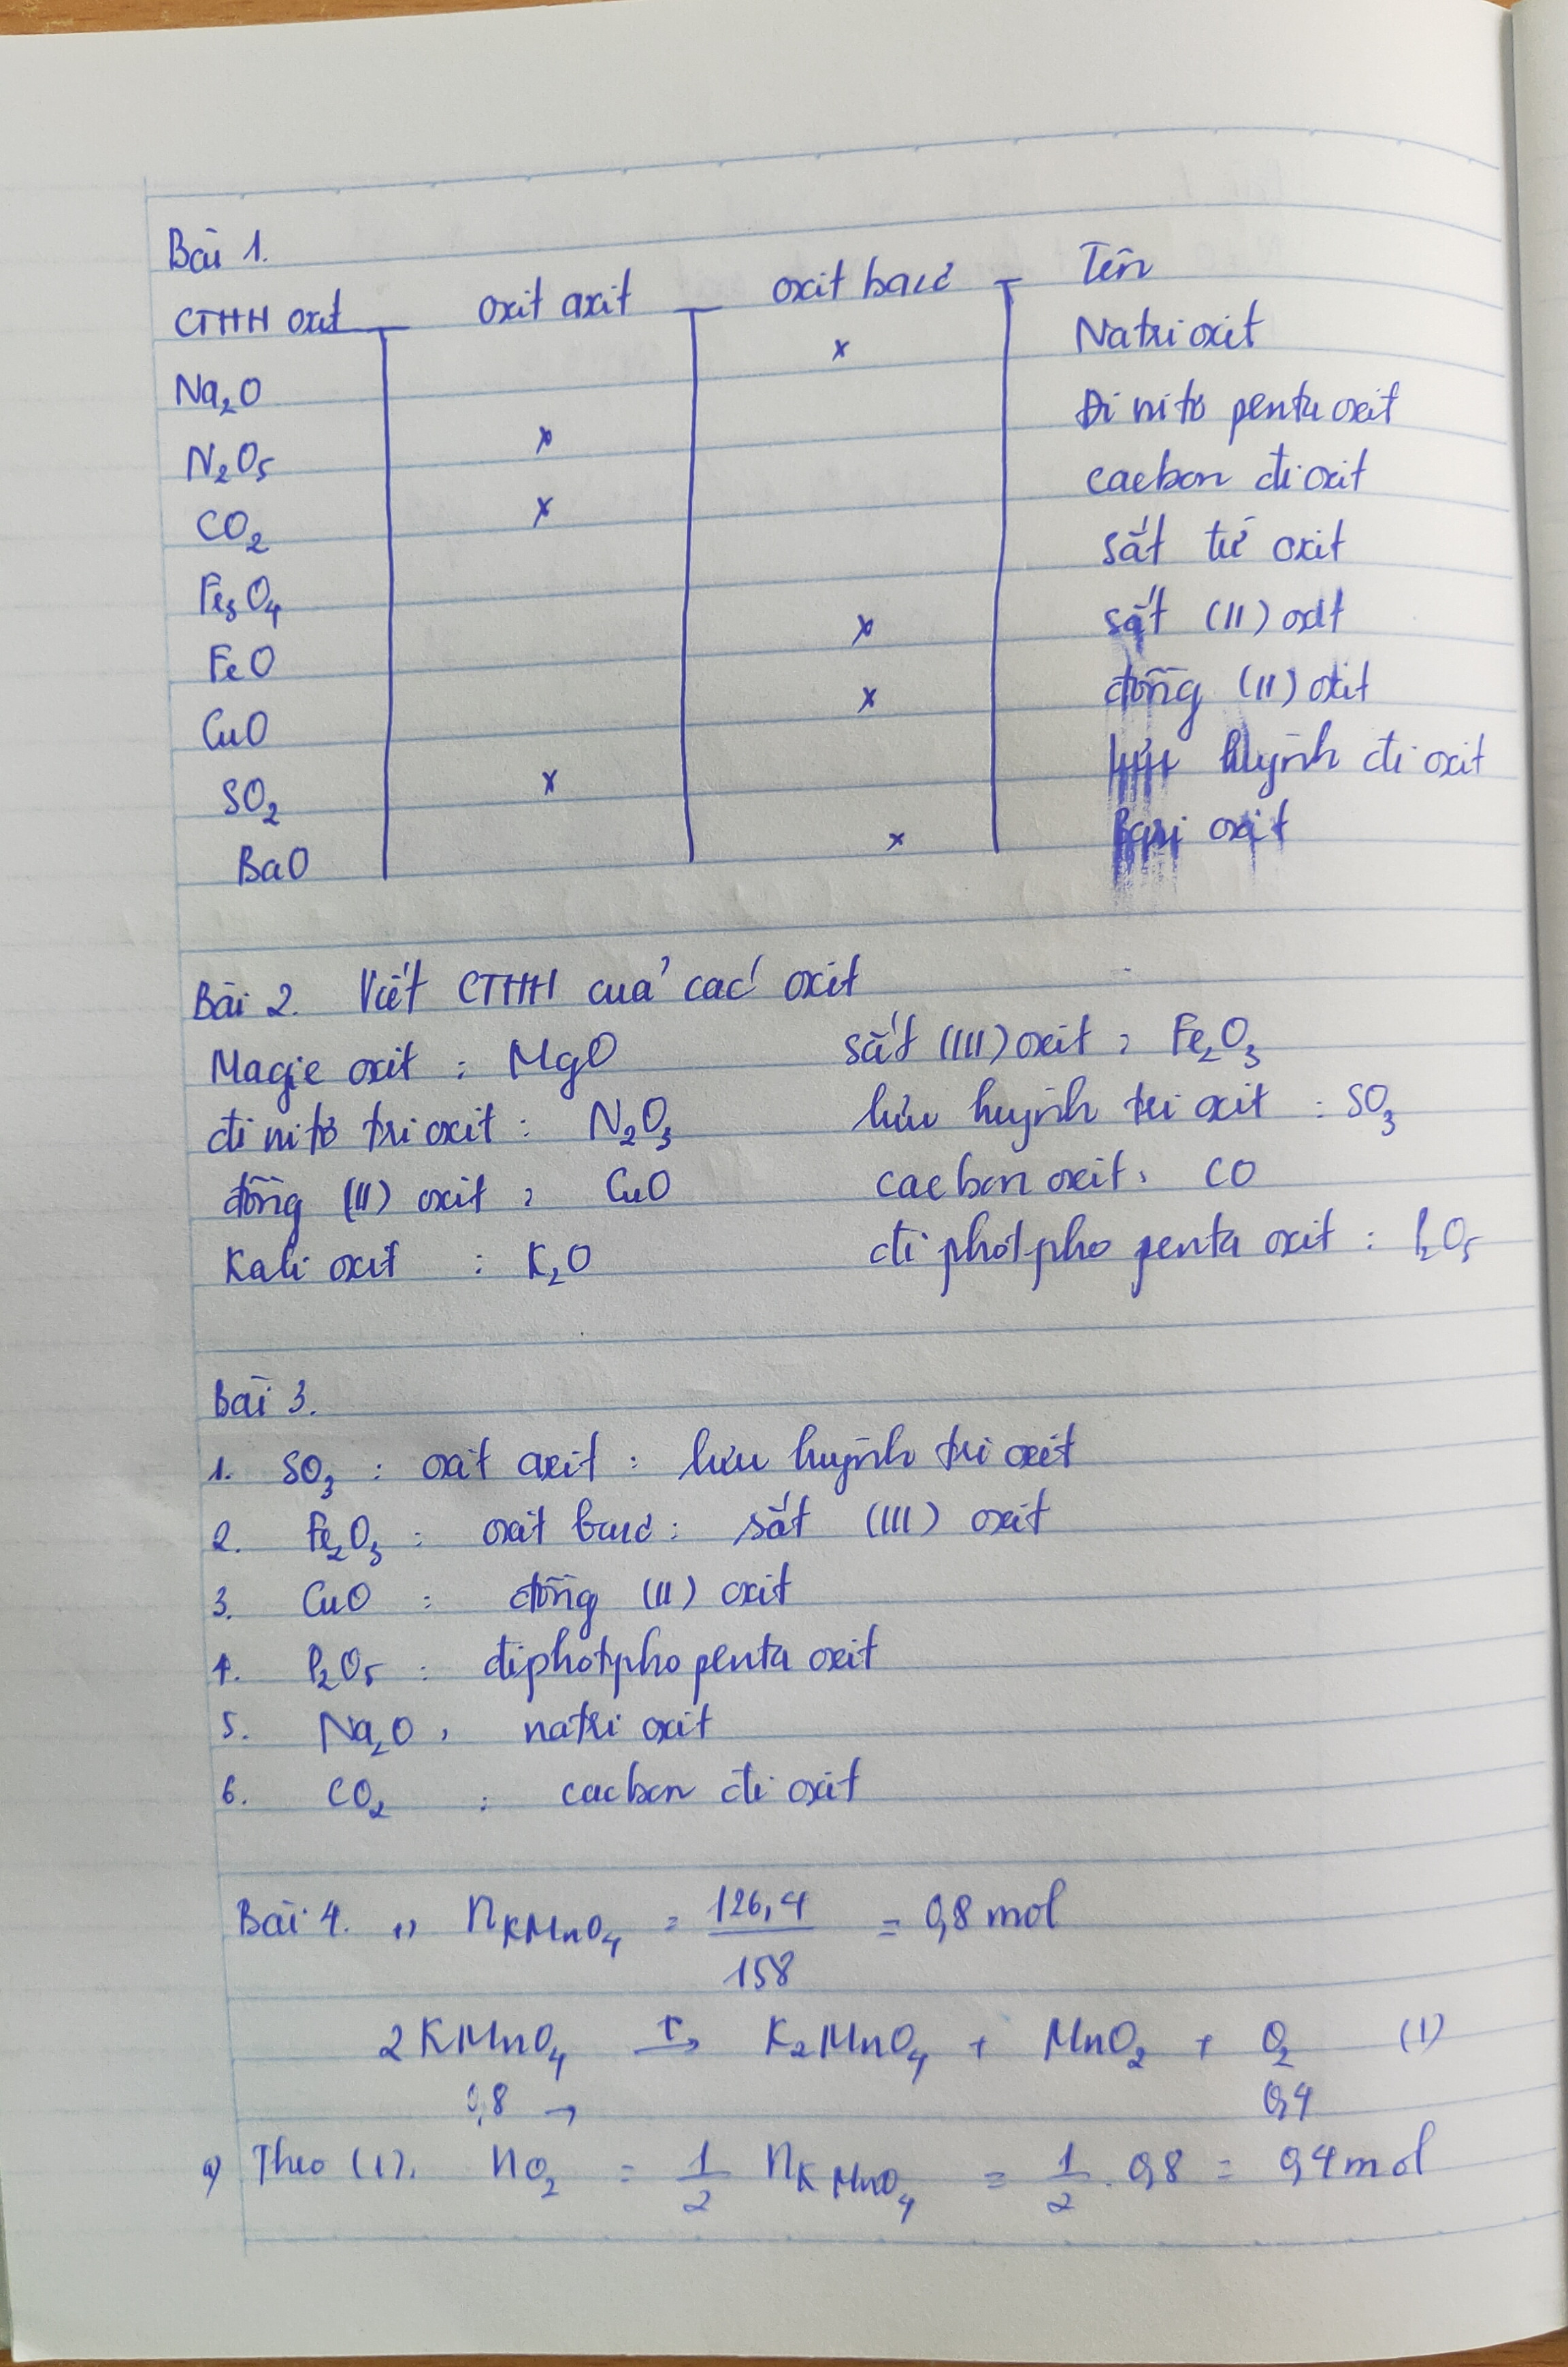 Bài 1.
CTHH oxit oxit axit oxit bazơ Tên
Na₂O x Natri oxit
N₂O₅ x Đi nitơ pentaoxit
CO₂ x cacbon đioxit
Fe₃O₄ sắt từ oxit
FeO x sắt (II) oxit
CuO x đồng (II) oxit
SO₂ x lưu huỳnh đi oxit
BaO x Bari oxit
Bài 2. Viết CTHH của các oxit
Magie oxit : MgO sắt (III) oxit : Fe₂O₃
đi nitơ tri oxit : N₂O₃ lưu huỳnh tri oxit : SO₃
đồng (II) oxit : CuO cacbon oxit : CO
Kali oxit : K₂O đi photpho penta oxit : P₂O₅
Bài 3.
1. SO₃ : oxit axit : lưu huỳnh tri oxit
2. Fe₂O₃ : oxit bazơ : sắt (III) oxit
3. CuO : đồng (II) oxit
4. P₂O₅ : điphotpho penta oxit
5. Na₂O : natri oxit
6. CO₂ : cacbon đi oxit
Bài 4. 1) n KMnO₄ = 126,4 / 158 = 0,8 mol
2KMnO₄ t° → K₂MnO₄ + MnO₂ + O₂ (1)
0,8 → 0,4
a) Theo (1). nO₂ = 1/2 nKMnO₄ = 1/2 . 0,8 = 0,4 mol